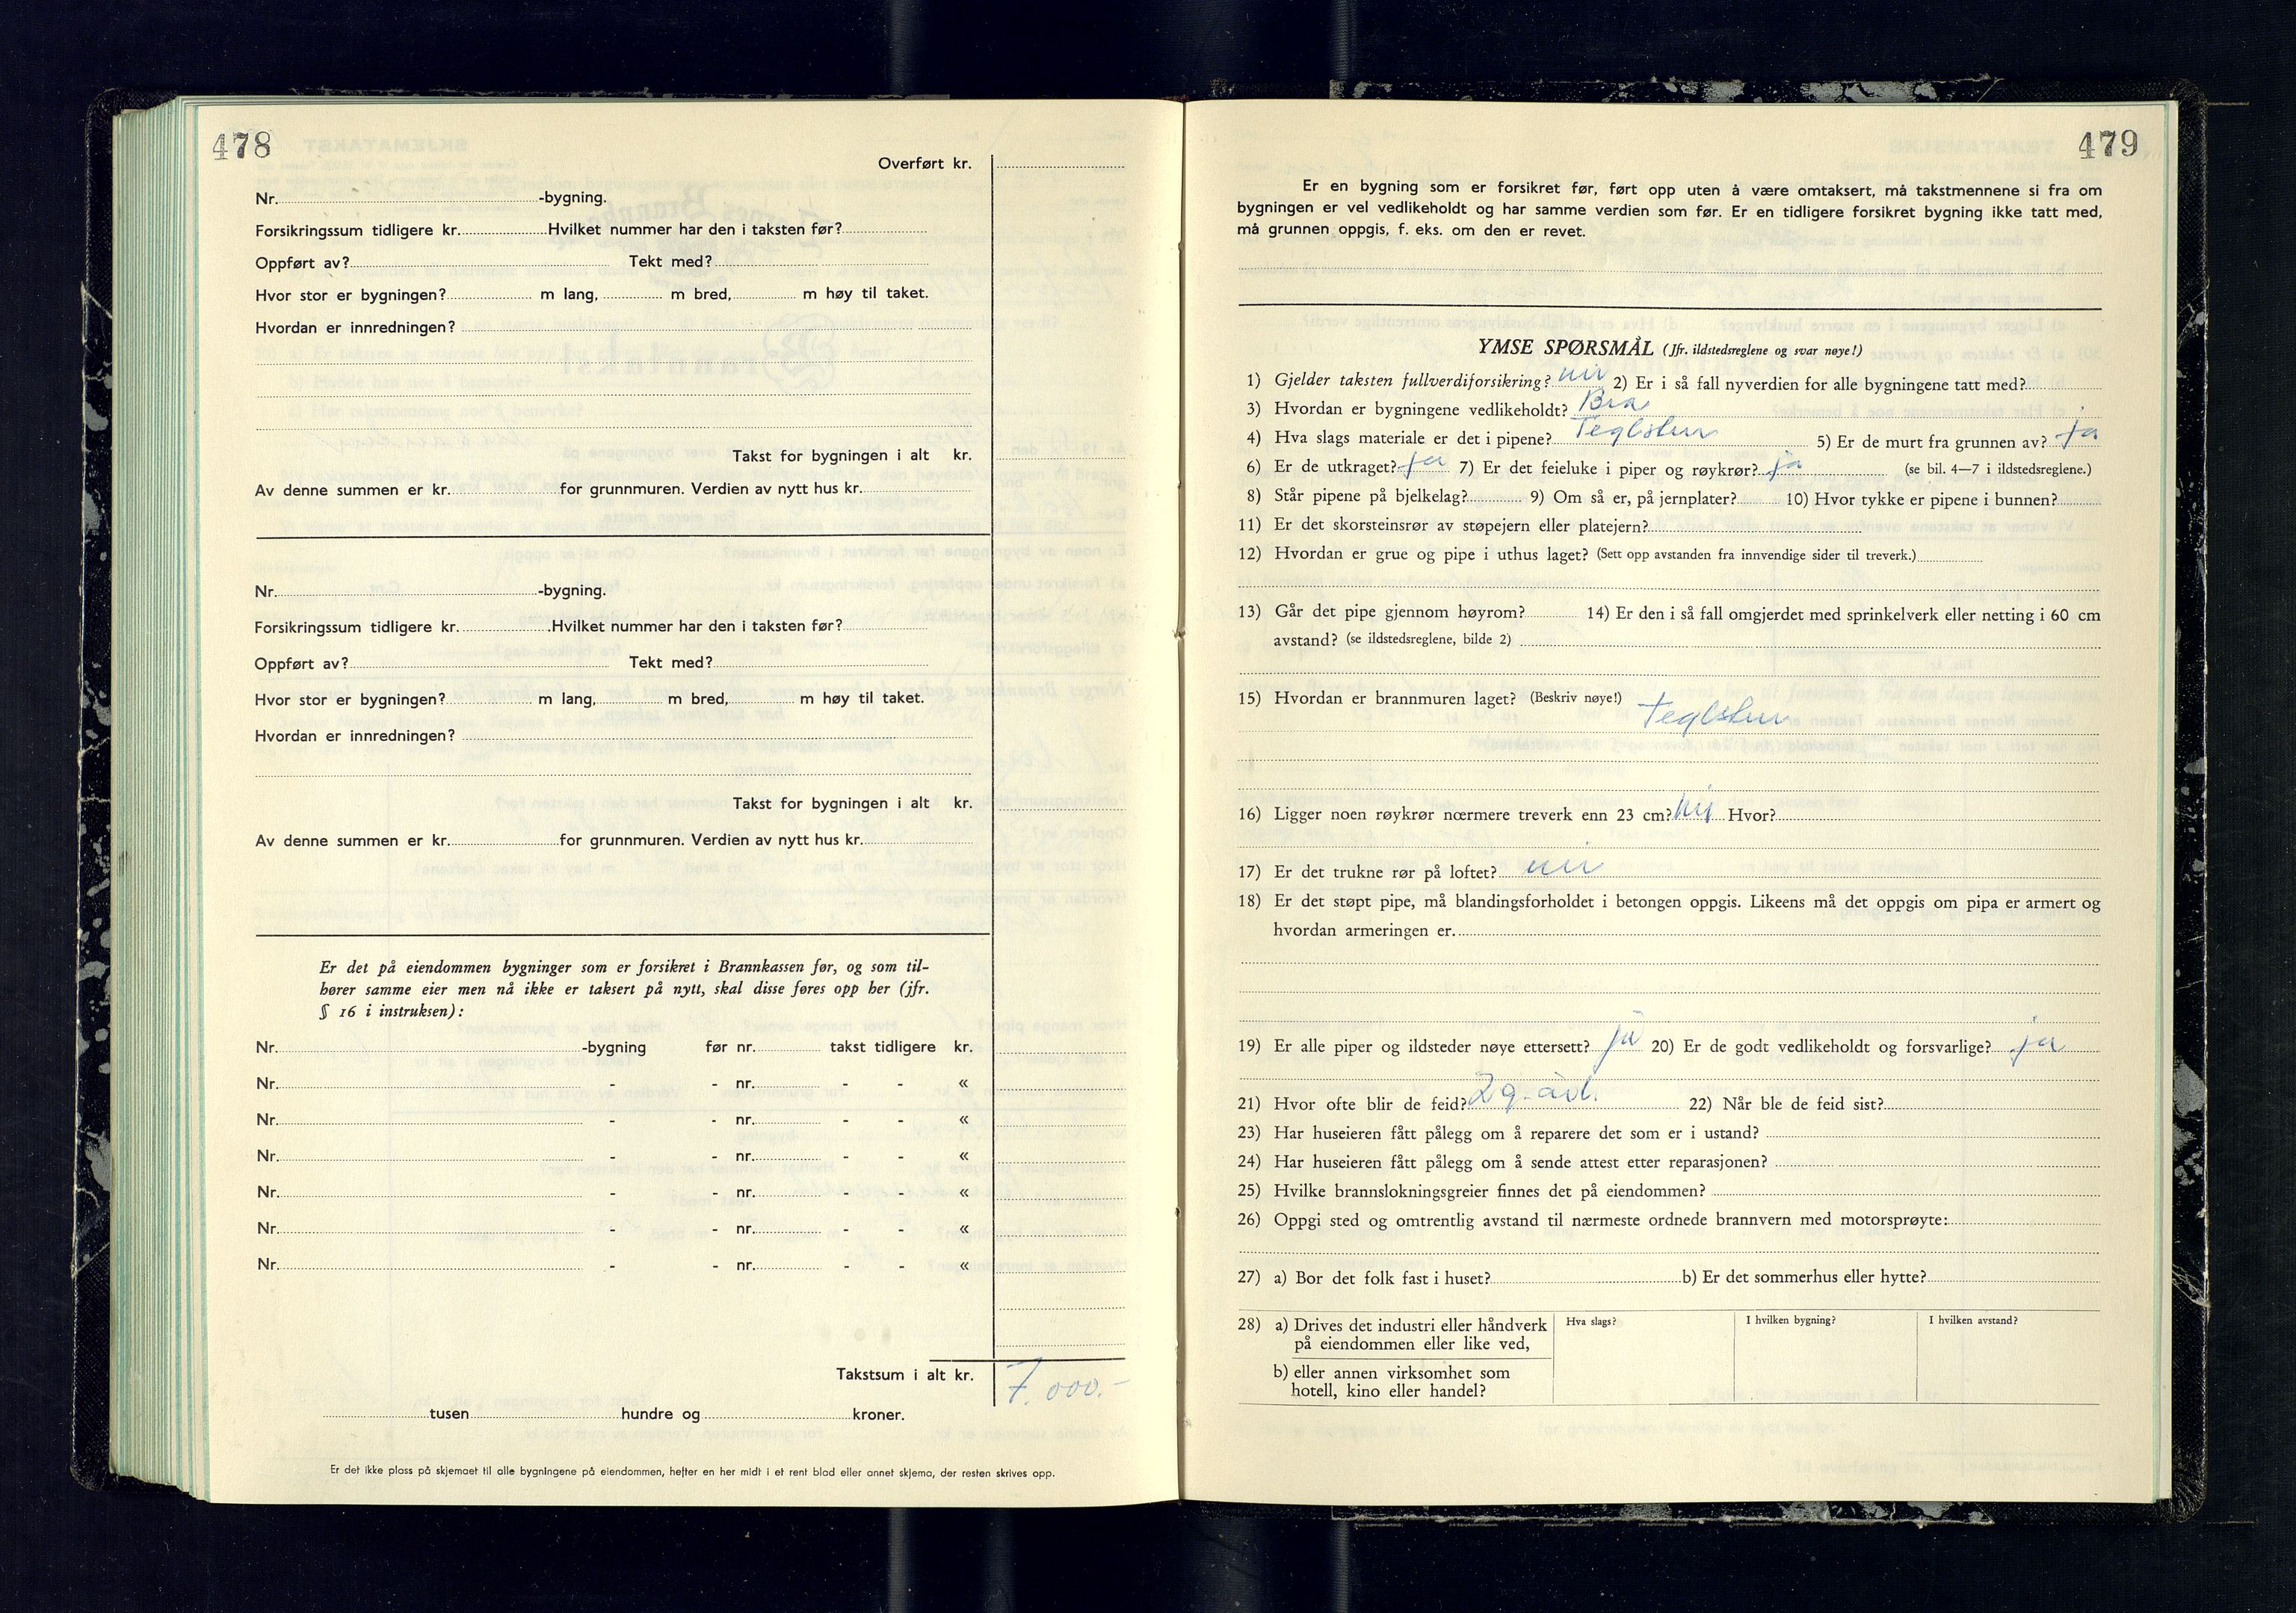 478
Overført kr.
Nr. -bygning.
Forsikringssum tidligere kr. Hvilket nummer har den i taksten før?
Oppført av? Tekt med?
Hvor stor er bygningen? m lang, m bred, m høy til taket.
Hvordan er innredningen?
Takst for bygningen i alt kr.
Av denne summen er kr. for grunnmuren. Verdien av nytt hus kr.
Nr. -bygning.
Forsikringssum tidligere kr. Hvilket nummer har den i taksten før?
Oppført av? Tekt med?
Hvor stor er bygningen? m lang, m bred, m høy til taket.
Hvordan er innredningen?
Takst for bygningen i alt kr.
Av denne summen er kr. for grunnmuren. Verdien av nytt hus kr.
Er det på eiendommen bygninger som er forsikret i Brannkassen før, og som til-
hører samme eier men nå ikke er taksert på nytt, skal disse føres opp her (jfr.
§ 16 i instruksen):
Nr. -bygning før nr. takst tidligere kr.
Nr. - - nr. - - «
Nr. - - nr. - - «
Nr. - - nr. - - «
Nr. - - nr. - - «
Nr. - - nr. - - «
Nr. - - nr. - - «
Takstsum i alt kr. 7.000.-
tusen hundre og kroner.
Er det ikke plass på skjemaet til alle bygningene på eiendommen, hefter en her midt i et rent blad eller annet skjema, der resten skrives opp.
479
Er en bygning som er forsikret før, ført opp uten å være omtaksert, må takstmennene si fra om
bygningen er vel vedlikeholdt og har samme verdien som før. Er en tidligere forsikret bygning ikke tatt med,
må grunnen oppgis, f. eks. om den er revet.
YMSE SPØRSMÅL (Jfr. ildstedsreglene og svar nøye!)
1) Gjelder taksten fullverdiforsikring? nei 2) Er i så fall nyverdien for alle bygningene tatt med?
3) Hvordan er bygningene vedlikeholdt? Bra
4) Hva slags materiale er det i pipene? Teglsten 5) Er de murt fra grunnen av? ja
6) Er de utkraget? ja 7) Er det feieluke i piper og røykrør? ja (se bil. 4—7 i ildstedsreglene.)
8) Står pipene på bjelkelag? 9) Om så er, på jernplater? 10) Hvor tykke er pipene i bunnen?
11) Er det skorsteinsrør av støpejern eller platejern?
12) Hvordan er grue og pipe i uthus laget? (Sett opp avstanden fra innvendige sider til treverk.)
13) Går det pipe gjennom høyrom? 14) Er den i så fall omgjerdet med sprinkelverk eller netting i 60 cm
avstand? (se ildstedsreglene, bilde 2)
15) Hvordan er brannmuren laget? (Beskriv nøye!) Teglsten
16) Ligger noen røykrør nærmere treverk enn 23 cm? nei Hvor?
17) Er det trukne rør på loftet? nei
18) Er det støpt pipe, må blandingsforholdet i betongen oppgis. Likeens må det oppgis om pipa er armert og
hvordan armeringen er.
19) Er alle piper og ildsteder nøye ettersett? ja 20) Er de godt vedlikeholdt og forsvarlige? ja
21) Hvor ofte blir de feid? 2 g. 22) Når ble de feid sist?
23) Har huseieren fått pålegg om å reparere det som er i ustand?
24) Har huseieren fått pålegg om å sende attest etter reparasjonen?
25) Hvilke brannslokningsgreier finnes det på eiendommen?
26) Oppgi sted og omtrentlig avstand til nærmeste ordnede brannvern med motorsprøyte:
27) a) Bor det folk fast i huset? b) Er det sommerhus eller hytte?
28) a) Drives det industri eller håndverk Hva slags? I hvilken bygning? I hvilken avstand?
på eiendommen eller like ved,
b) eller annen virksomhet som
hotell, kino eller handel?